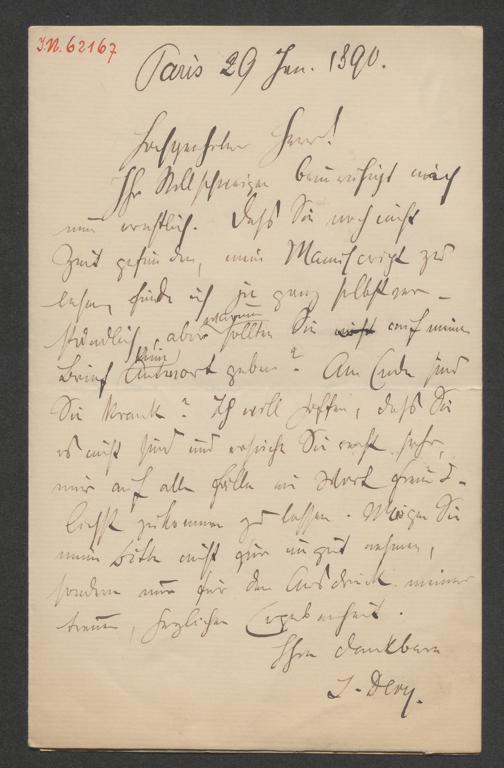 I.N. 62167
Paris 29 Jan. 1890.
Hochgeehrter Herr!
Ihr Stillschweigen beunruhigt mich
nun ernstlich. Daß Sie noch nicht
Zeit gefunden, mein Manuscript zu
lesen, finde ich ja ganz selbstver-
ständlich, aber warum sollten Sie auf meinen
Brief keine Antwort geben? Am Ende sind
Sie krank? Ich will hoffen, daß Sie
es nicht sind und ersuche Sie recht sehr,
mir auf alle Fälle ein Wort freund-
lichst zukommen zu lassen. Mögen Sie
meine Bitte nicht für ungut nehmen,
sondern nur für den Ausdruck meiner
treuen, herzlichen Ergebenheit.
Ihre dankbare